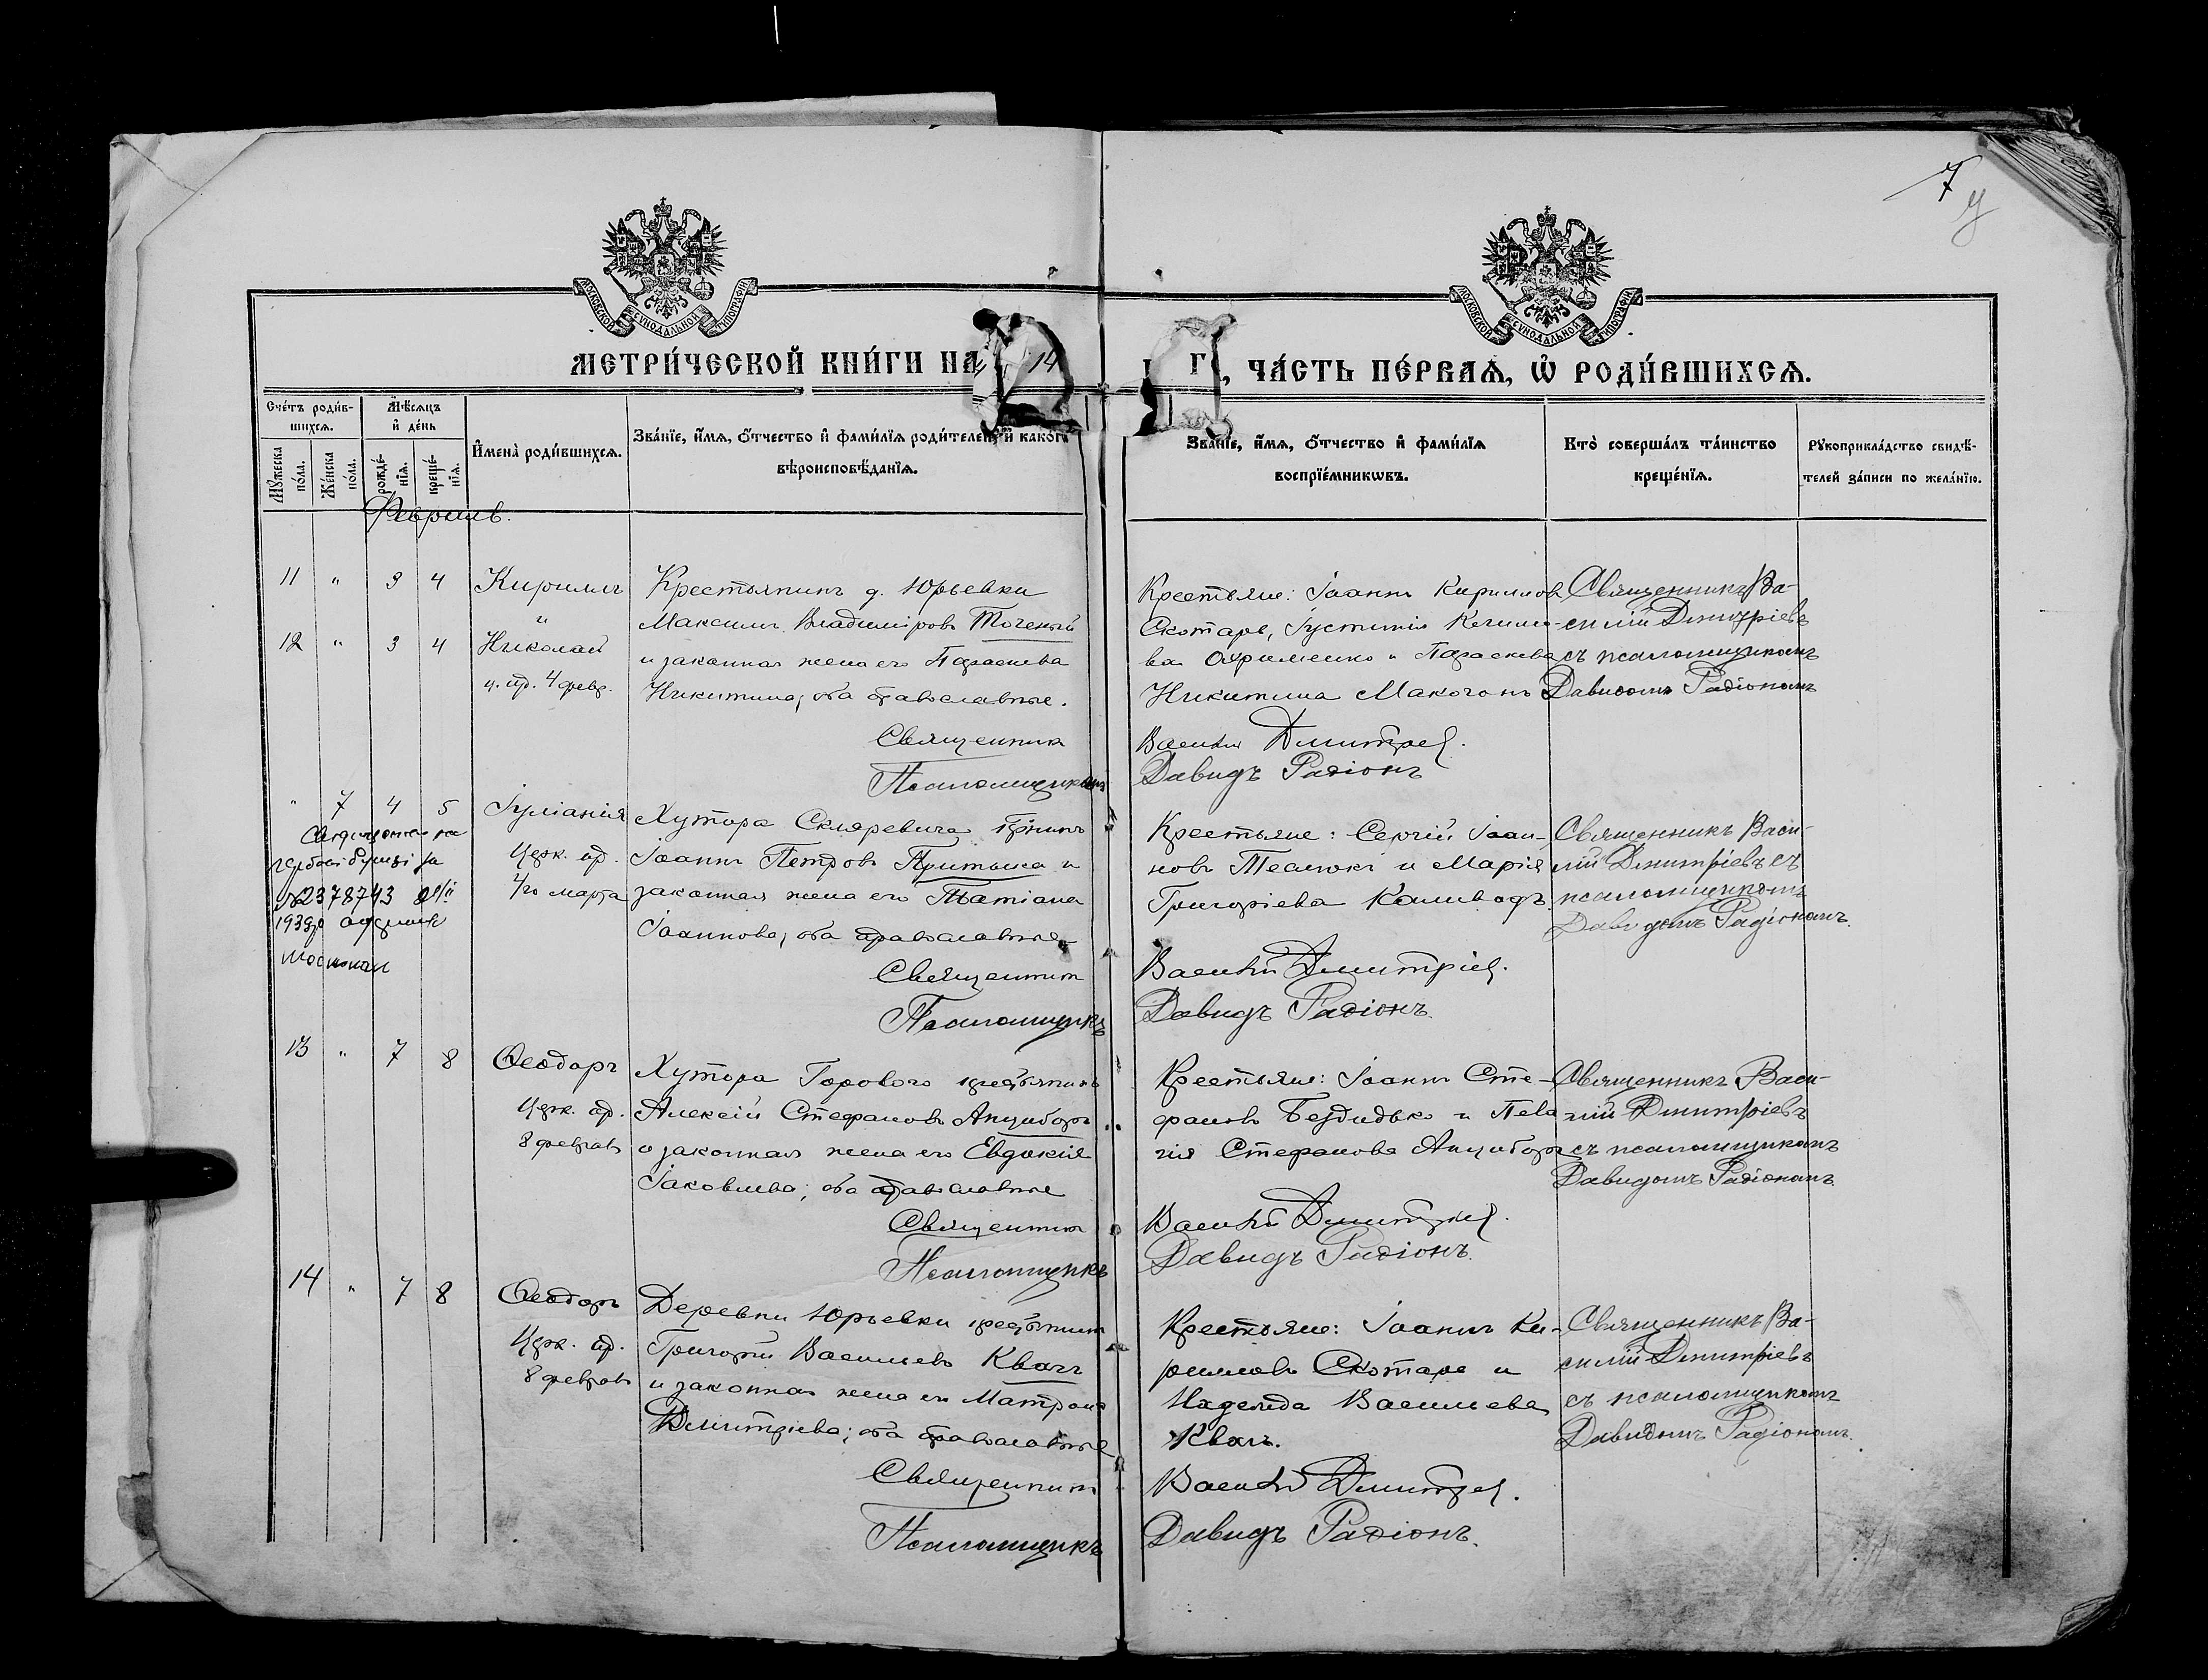 7
МОСКОВСКОЙ СѴНОДАЛЬНОЙ ТИПОГРАФІИ
МОСКОВСКОЙ СѴНОДАЛЬНОЙ ТИПОГРАФІИ
МЕТРИ́ЧЕСКОЙ КНИ́ГИ НА 14 Г, ЧА́СТЬ ПЕ́РВАѦ, Ѡ҆ РОДИ́ВШИХСѦ.
Сче́тъ роди́в-
шихсѧ.
Мѣ́сѧцъ
и҆ де́нь
Мꙋ́жеска
по́ла.
Же́нска
по́ла.
рожде́-
нїѧ.
креще́-
нїѧ.
И҆мена̀ роди́вшихсѧ.
Зва́нїе, и҆́мѧ, ѻ҆́тчество и҆ фами́лїѧ роди́телей, и҆ како́гѡ
вѣроисповѣ́данїѧ.
Зва́нїе, и҆́мѧ, ѻ҆́тчество и҆ фами́лїѧ
воспрїе́мникѡвъ.
Кто̀ соверша́лъ та́инство
креще́нїѧ.
Рꙋкоприкла́дство свидѣ́-
телей за́писи по жела́нїю.
Февраль.
11 " 3 4 Кириллъ
12 " 3 4 Николай
4 февр.
Крестьянинъ д. Юрьевки
Максимъ Владиміровъ Точеный
и законная жена его Параскева
Никитина; оба православные.
Священникъ
Псаломщикъ
Крестьяне: Іоаннъ Кирилловъ
Скотаре, Іустинія
ва Охрименко и Параскева
Никитина Макогонъ
Василій Дмитріев.
Давидъ Радіонъ
Священникъ Ва-
силій Дмитріевъ
съ псаломщикомъ
Давидомъ Радіономъ
" 7 4 5 Іуліанія
4/20 марта
№2378743
1939р
Хутора Скляревича кр-нинъ
Іоаннъ Петровъ Притыка и
законная жена его Татіана
Іоаннова; оба православные
Священникъ
Псаломщикъ
Крестьяне: Сергій Іоан-
новъ Теслюкъ и Марія
Григоріева Каливодъ.
Василій Дмитріев.
Давидъ Радіонъ.
Священникъ Васи-
лій Дмитріевъ съ
псаломщикомъ
Давидомъ Радіономъ.
13 " 7 8 Ѳеодоръ
8 февраля
Хутора Горового крестьянинъ
Алексій Стефановъ Анцыборъ
и законная жена его Евдокія
Іаковлева; оба православные
Священникъ
Псаломщикъ
Крестьяне: Іоаннъ Сте-
фановъ Бездидько и Пела
гія Стефанова Анцыборъ
Василій Дмитріев.
Давидъ Радіонъ.
Священникъ Васи-
лій Дмитріевъ
съ псаломщикомъ
Давидомъ Радіономъ.
14 " 7 8 Ѳеодоръ
8 февраля
Деревни Юрьевки крестьянинъ
Григорій Васильевъ Квачъ
и законная жена его Матрона
Дмитріева; оба православные
Священникъ
Псаломщикъ
Крестьяне: Іоаннъ Ки-
рилловъ Скотаре и
Надежда Васильева
Квачъ.
Василій Дмитріев.
Давидъ Радіонъ.
Священникъ Ва-
силій Дмитріевъ
съ псаломщикомъ
Давидомъ Радіономъ.